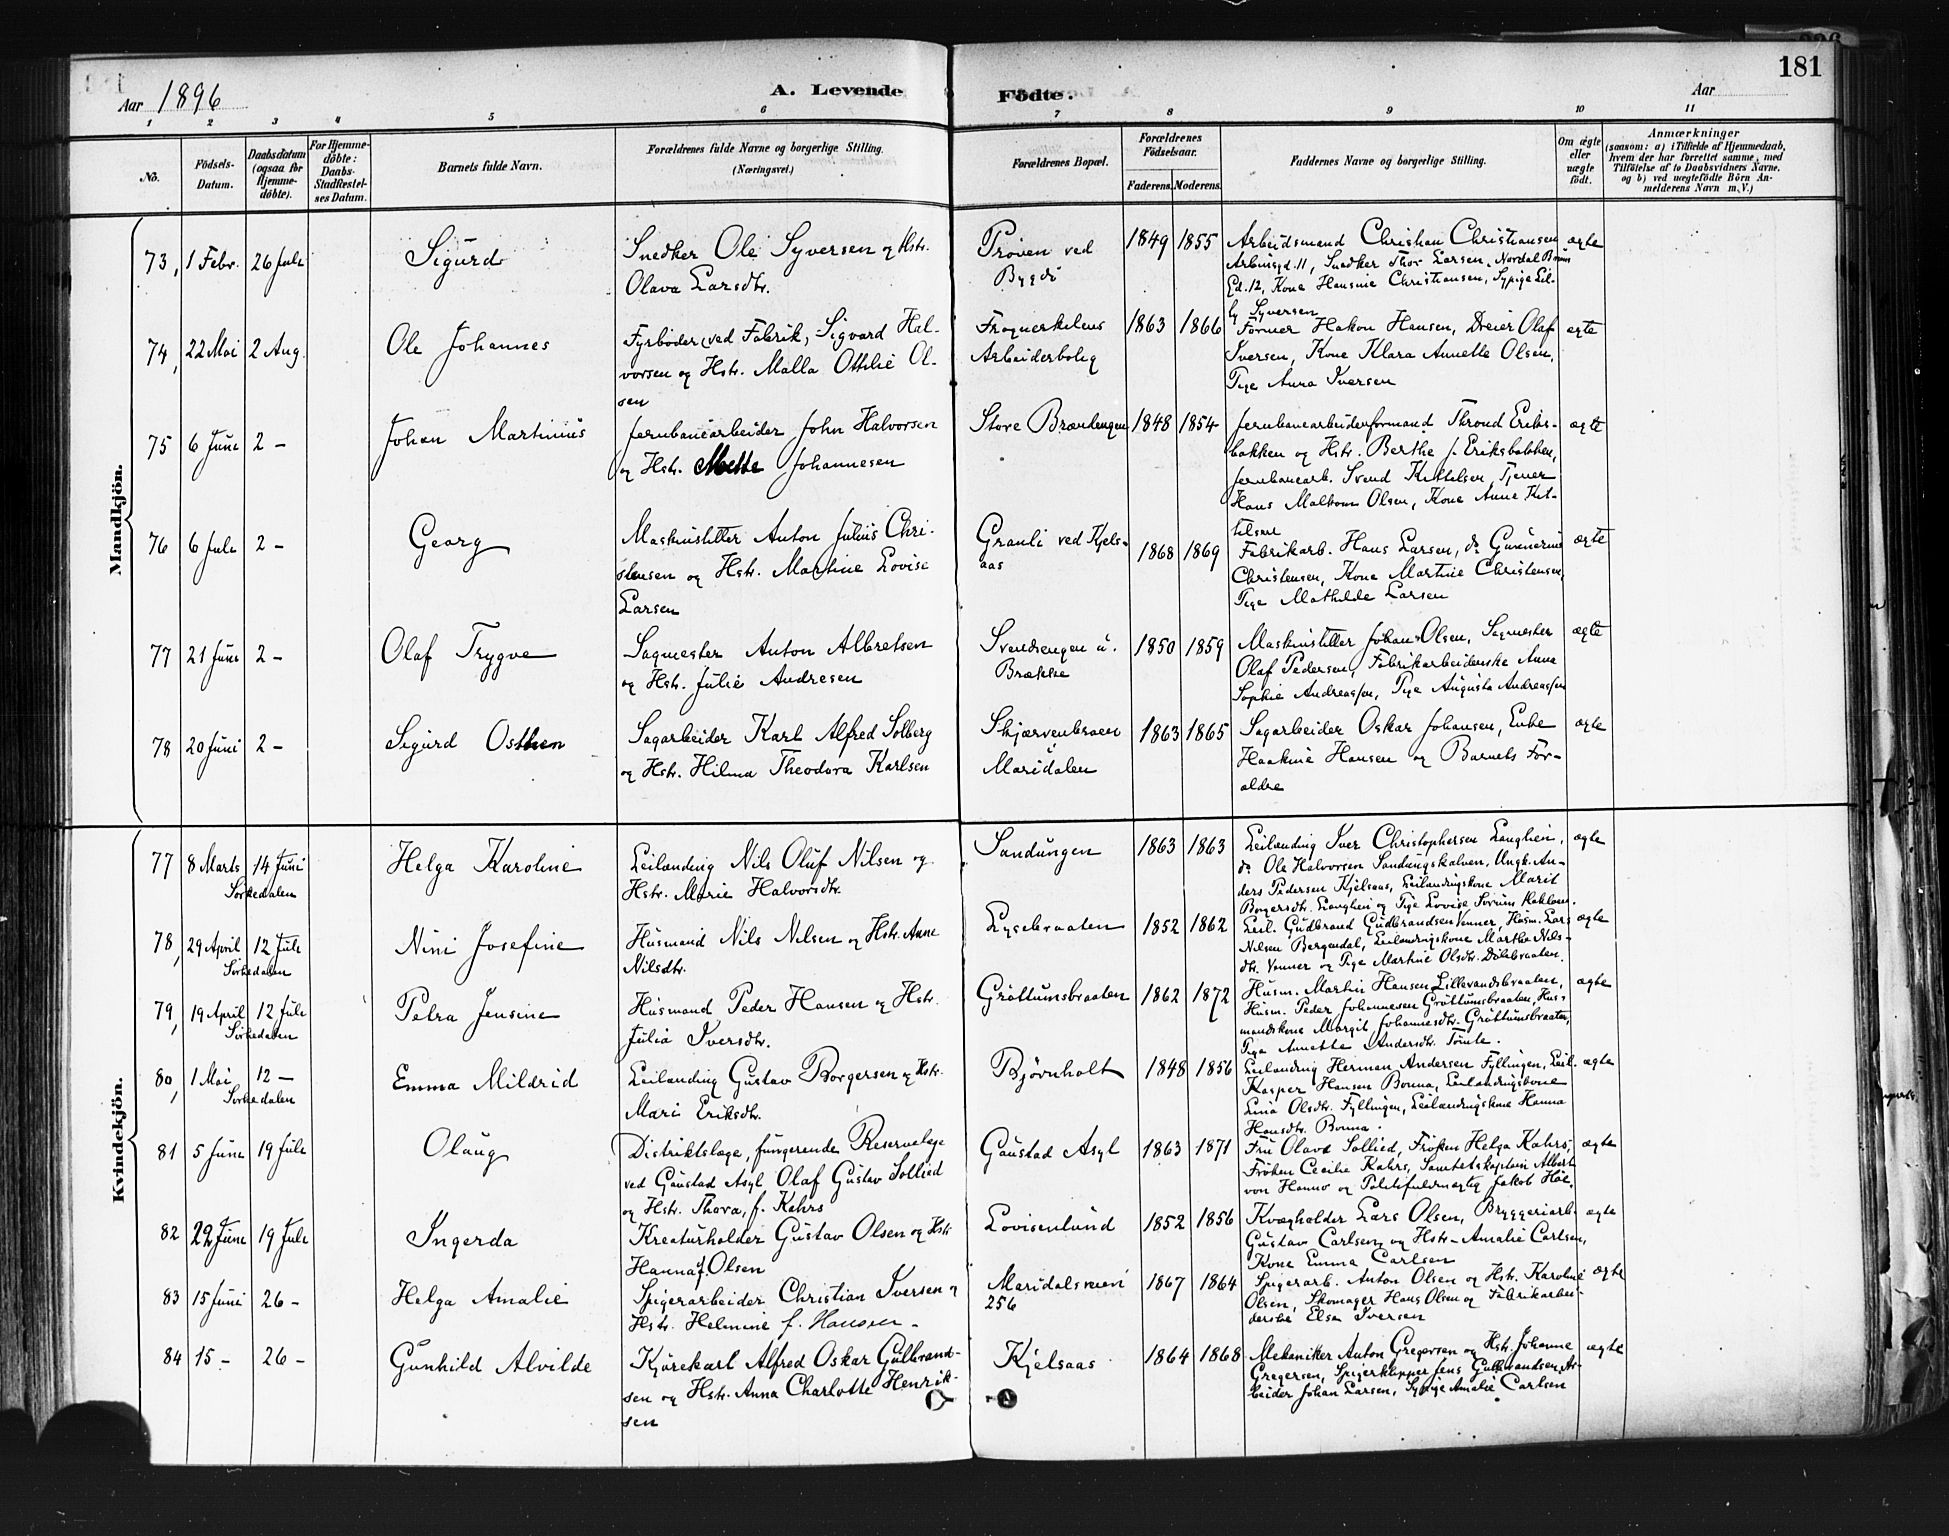 181
Aar 1896
A. Levende
Födte.
Aar
1 2 3 4 5 6 7 8 9 10 11
No.
Födsels-
Datum.
Daabsdatum
(ogsaa for
Hjemme-
döbte).
For Hjemme-
döbte:
Daabs-
Stadfæstel-
ses Datum.
Barnets fulde Navn.
Forældrenes fulde Navne og borgerlige Stilling.
(Næringsvei.)
Forældrenes Bopæl.
Forældrenes
Födselsaar.
Faderens. Moderens.
Faddernes Navne og borgerlige Stilling.
Om ægte
eller
uægte
födt.
Anmærkninger
(saasom: a) i Tilfælde af Hjemmedaab,
hvem der har forrettet samme, med
Tilföielse af to Daabsvidners Navne,
og b) ved uægtefödte Börn An-
melderens Navn m. V.)
Mandkjön.
73, 1 Febr. 26 Juli Sigurd
Snedker Ole Syversen og Hstr.
Olava Larsdtr.
Prøven ved
Bygdö
1849 1855
Arbeidsmand Christian Christiansen
Arbinsgd. 11, Snedker Thor Larsen, Nordal Bruns
Gd. 12, Kone Hansine Christiansen, Sypige Lil-
ly Syversen
ægte
74, 22 Mai 2 Aug. Ole Johannes
Fyrböder (ved Fabrik) Sigvard Hal-
vorsen og Hstr. Malla Ottilie Ol-
sen
Frognerkilens
Arbeiderbolig
1863 1866
Former Hakon Hansen, Dreier Olaf
Iversen, Kone Klara Annette Olsen,
Pige Anna Iversen
ægte
75 6 Juni 2 – Johan Martinius
Jernbanearbeider John Halvorsen
og Hstr. Mette Johannesen
Store Brændengen
1848 1854
Jernbanearbeiderformand Thrond Eriks-
bakken og Hstr. Berthe f. Eriksbakken,
Jernbanearb. Svend Kittelsen, Tjener
Hans Malkom Olsen, Kone Anne Kit-
telsen
ægte
76 6 Juli 2 – Georg
Maskinstiller Anton Julius Chri-
stensen og Hstr. Martine Lovise
Larsen
Granli ved Kjels-
aas
1868 1869
Fabrikarb. Hans Larsen, do Gunnerius
Christensen, Kone Martine Christensen,
Pige Mathilde Larsen
ægte
77 21 Juni 2 – Olaf Trygve
Sagmester Anton Albretsen
og Hstr. Julie Andresen
Svendsengen u.
Brække
1850 1859
Maskinstiller Johan Olsen, Sagmester
Olaf Pedersen, Fabrikarbeiderske Anna
Sophie Andreassen, Pige Augusta Andreassen
ægte
78 20 Juni 2 – Sigurd Osthen
Sagarbeider Karl Alfred Solberg
og Hstr. Hilma Theodora Karlsen
Skjærvenbraaen
Maridalen
1863 1865
Sagarbeider Oskar Johansen, Enke
Haakine Hansen og Barnets For-
ældre
ægte
Kvindekjön.
77 8 Marts 14 Juni
Sørkedalen
Helga Karoline
Leilænding Nils Oluf Nilsen og
Hstr. Marie Halvorsdtr.
Sandungen
1863 1863
Leilænding Iver Christophersen Langlien,
do Ole Halvorsen Sandungskalven, Ungk. An-
ders Pedersen Kjelsaas, Leilændingskone Marit
Borgersdtr. Langlien og Pige Lovise Hakloen.
ægte
78, 29 April 12 Juli
Sørkedalen
Nini Josefine
Husmand Nils Nilsen og Hstr. Anne
Nilsdtr.
Lysebraaten
1852 1862
Leil. Gudbrand Gudbrandsen Venner, Husm. Lars
Nilsen Bergendal, Leilændingskone Marthe Nils-
dtr. Venner og Pige Martine Olsdtr.
ægte
79, 19 April 12 Juli
Sørkedalen
Petra Jensine
Husmand Peder Hansen og Hstr.
Julia Iversdtr.
Gröttumsbraaten
1862 1872
Husm. Martin Hansen Lillevandsbraaten,
Husm. Peder Johannesen Gröttumsbraaten, Hus-
mandskone Margit Johannesdtr. Gröttumsbraaten,
Pige Annette Andersdtr. Tömte.
ægte
80, 1 Mai 12 –
Sørkedalen
Emma Mildrid
Leilænding Gustav Borgersen og Hstr.
Mari Eriksdtr.
Bjørnholt
1848 1856
Leilænding Herman Andersen Fyllingen, Leil.
Kasper Hansen Bonna, Leilændingskone
Lina Olsdtr. Fyllingen, Leilændingskone Hanna
Hansdtr. Bonna.
ægte
81 5 Juni 19 Juli Olaug
Distriktslæge, fungerende Reservelæge
ved Gaustad Asyl Olaf Gustav Sollied
og Hstr. Thora, f. Kahrs
Gaustad Asyl
1863 1871
Fru Olava Sollied, Frøken Helga Kahrs,
Frøken Cecilie Kahrs, Sanitetskaptein Albert
von Hanno og Politifuldmægtig Jakob Hoe.
ægte
82 22 Juni 19 Juli Ingerda
Kreaturholder Gustav Olsen og Hstr
Hanna f. Olsen
Lovisenlund
1852 1856
Kvægholder Lars Olsen, Bryggeriarb.
Gustav Carlsen og Hstr. Amalie Carlsen,
Kone Emma Carlsen
ægte
83 15 Juni 26 – Helga Amalie
Spigerarbeider Christian Iversen og
Hstr. Helmine f. Hansen –
Maridalsveien
256
1867 1864
Spigerarb. Anton Olsen og Hstr. Karoline
Olsen, Skomager Hans Olsen og Fabrikarbei-
derske Elsa Iversen
ægte
84 15 – 26 – Gunhild Alvilde
Kjörekarl Alfred Oskar Gulbrand-
sen og Hstr. Anna Charlotte Henrik-
sen
Kjelsaas
1864 1868
Mekaniker Anton Gregersen og Hstr. Johanne
Gregersen, Spigerklipper Jens Gulbrandsen, Ar-
beider Johan Larsen, Sypige Amalie Carlsen
ægte